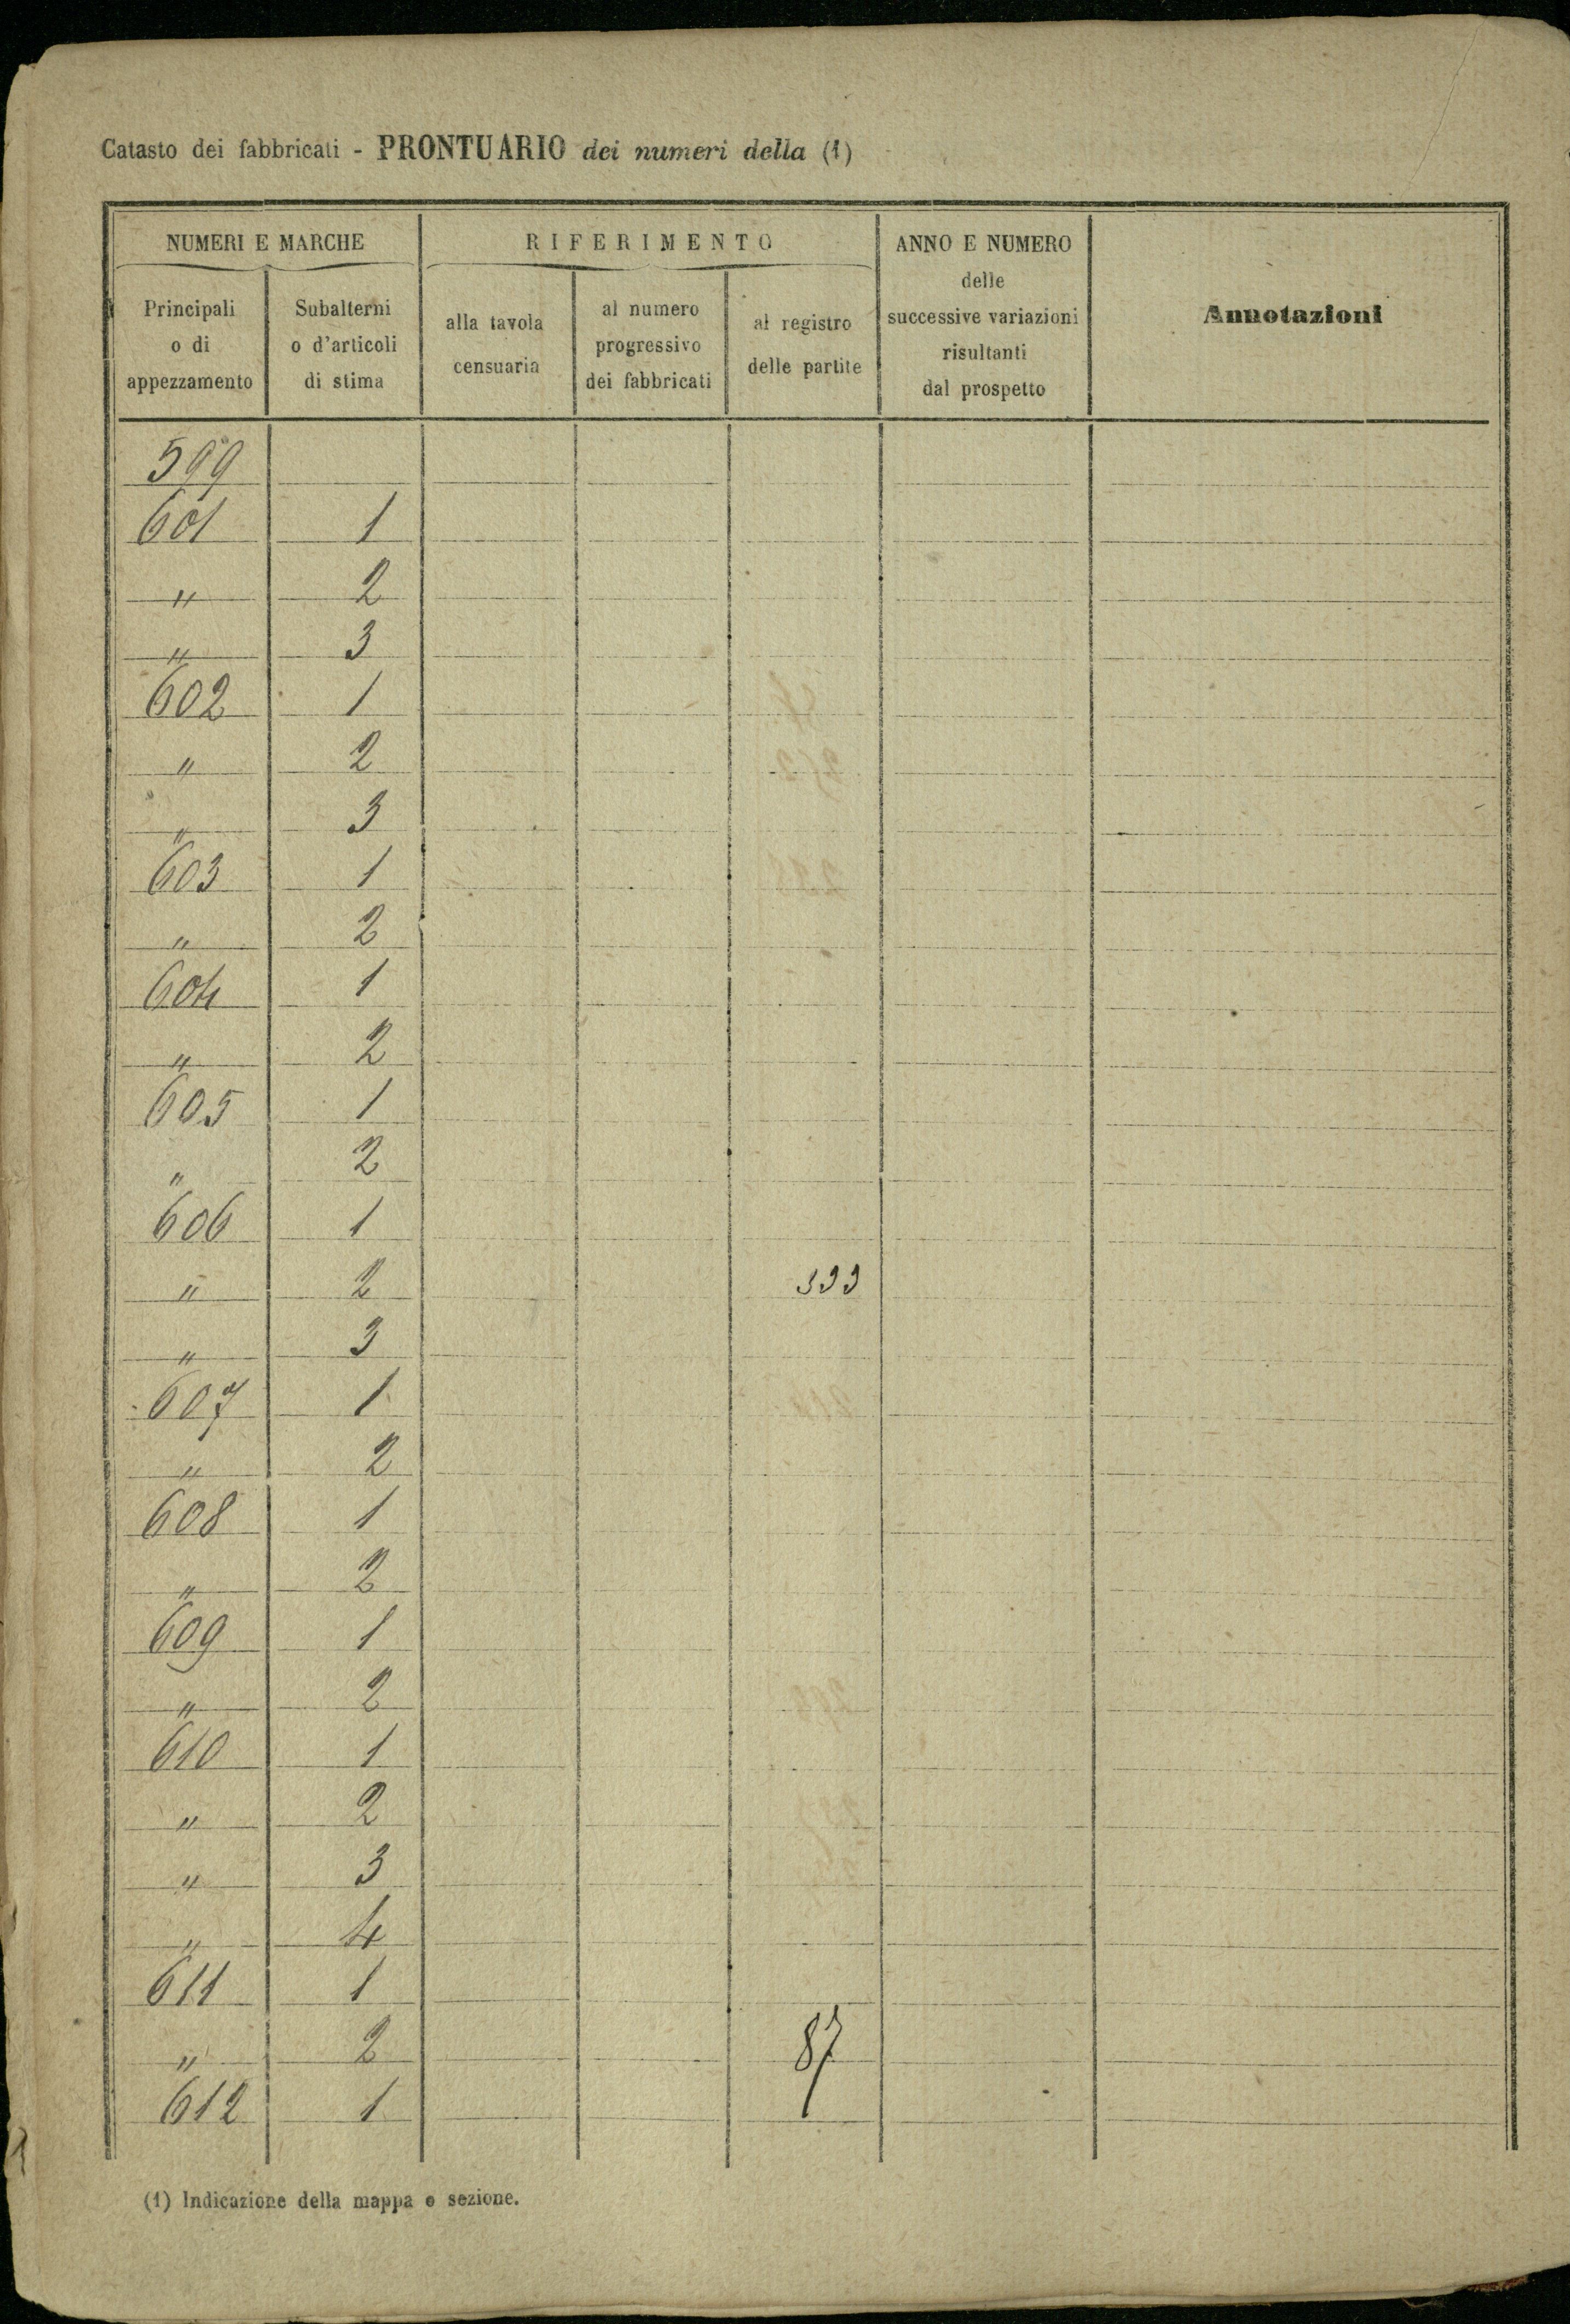 Catasto dei fabbricati - PRONTUARIO dei numeri della (1)
NUMERI E MARCHE
RIFERIMENTO
ANNO E NUMERO
delle
successive variazioni
risultanti
dal prospetto
Annotazioni
Principali
o di
appezzamento
Subalterni
o d'articoli
di stima
alla tavola
censuaria
al numero
progressivo
dei fabbricati
al registro
delle partite
599
601 1
" 2
" 3
602 1
" 2
" 3
603 1
" 2
604 1
" 2
605 1
" 2
606 1
" 2 333
" 3
607 1
" 2
608 1
" 2
609 1
" 2
610 1
" 2
" 3
" 4
611 1
" 2 87
612 1
(1) Indicazione della mappa o sezione.